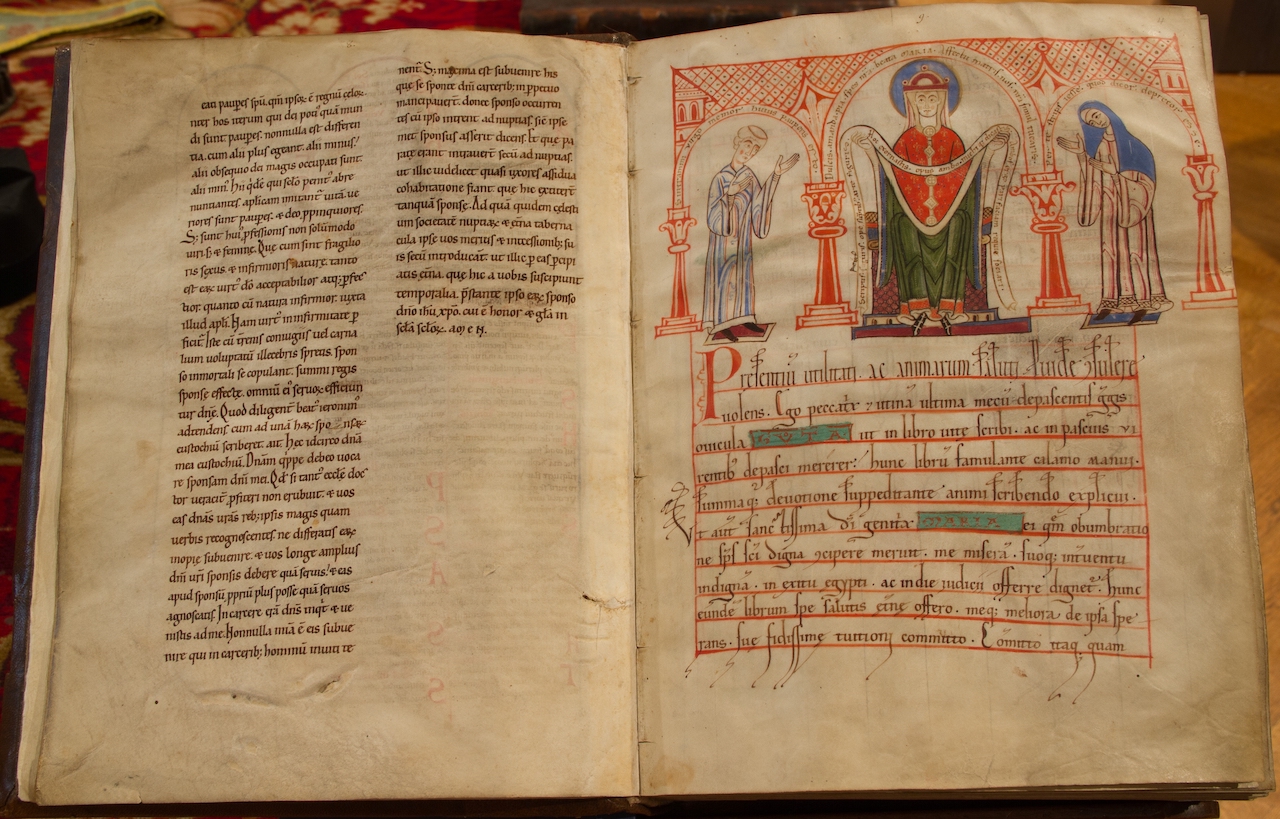 cati paupes spu. qm ipsoꝝ ē regnū celoꝝ.
nter hos iterum qui dei poti⁹ quā mun
di sunt paupes. nonnulla est differen
tia. cum alii plus egeant. alii minus.
alii obsequio dei magis occupati sunt.
alii min⁹. hi qdē qui sclo penit⁹ abre
nuntiantes aplicam imitant̄ uitā. ue
riores sunt paupes. & deo ppinquiores.
S; sunt hui⁹ pfessionis non solū modo
uiri. s; & femine. Que cum sint fragilio
ris sexus. & infirmioris nature. tanto
est eaꝝ uirt⁹ dō acceptabilior atq; pfec
tior. quanto eū natura infirmior. iuxta
illud apli. Nam uirt⁹ in infirmitate p
ficit. Iste cū terrenis coniugiis uel carna
lium uoluptatū illecebris spretis. spon
so inmortali se copulant. summi regis
sponse effecte. omniū ei⁹ seruoꝝ efficiun
tur dn̄e. Quod diligent̄ beat⁹ ieronim⁹
adtendens. cum ad unā haꝝ sponsaꝝ
eustochiū scriberet. ait. Hec idcirco dn̄ā
mea eustochiū. Dn̄am qppe debeo uoca
re sponsam dn̄i mei. Qd si tant⁹ eccle doc
tor ueracit̄ pfiteri non erubuit. & uos
eas dn̄as urās reb; ipsis magis quam
uerbis recognoscentes. ne differatis eaꝝ
inopie subuenire. & uos longe amplius
dn̄i uri sponsis debere quā seruis. & eas
apud sponsū ppriū plus posse quā seruos
agnoscatis. In carcere erā dn̄s inqt & ue
nistis ad me. Nonnulla mīa ē eis subue
nire qui in carcerib; hominū inuiti te
nent̄. S; maxima est subuenire his
que se sponte dn̄i carcerib; in ppetuo
mancipauerȳ. donec sponso occurren
tes cū ipso intrent ad nuptias. sic ipse
met sponsus asserit dicens. Et que pa
rate erant intrauerȳ secū ad nuptias.
ut illic uidelicet quasi uxores assidua
cohabitatione fiant. que hic extiterȳ
tanquā sponse. Ad quā quidem celesti
um societatē nuptiaꝝ & etn̄a taberna
cula ipse uos meritis & int̄cessionib; su
is secū introducāt. ut illic p eas pcipi
atis etn̄a. que hic a uobis suscipiunt
temporalia. pstante ipso eaꝝ sponso
dn̄o ihu xpo. cui ē honor & gla in
scla scloꝝ. am̄e N.
Presentiū utilitati. ac animarum saluti. puide ꝯsulere
uolens. Ego peccatx̄ & utinā ultima mecū depascentis ggis
ouicula GVTA ut in libro uite scribi. ac in pascuis vi
rentib⁹ depasci mererer. hunc librū famulante calamo manui.
summaq; deuotione suppeditante animi scribendo explicui.
Ut aut̄ sanctissima di genitx̄ MARIA ei qm obumbratio
ne sps sci digna ꝯcipere meruit. me miserā. suoq; intuentu
indignā. in exitu egypti. ac in die iudicii offerre dignet̄. hunc
eundē librum spe salutis etn̄e offero. meq; meliora de ipsa spe
rans. sue fidissime tuitioni committo. Comitto itaq; quam